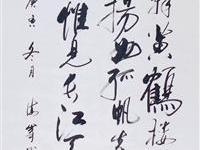 辞黄鹤楼
扬州孤帆远
惟见长江天
庚寅冬月